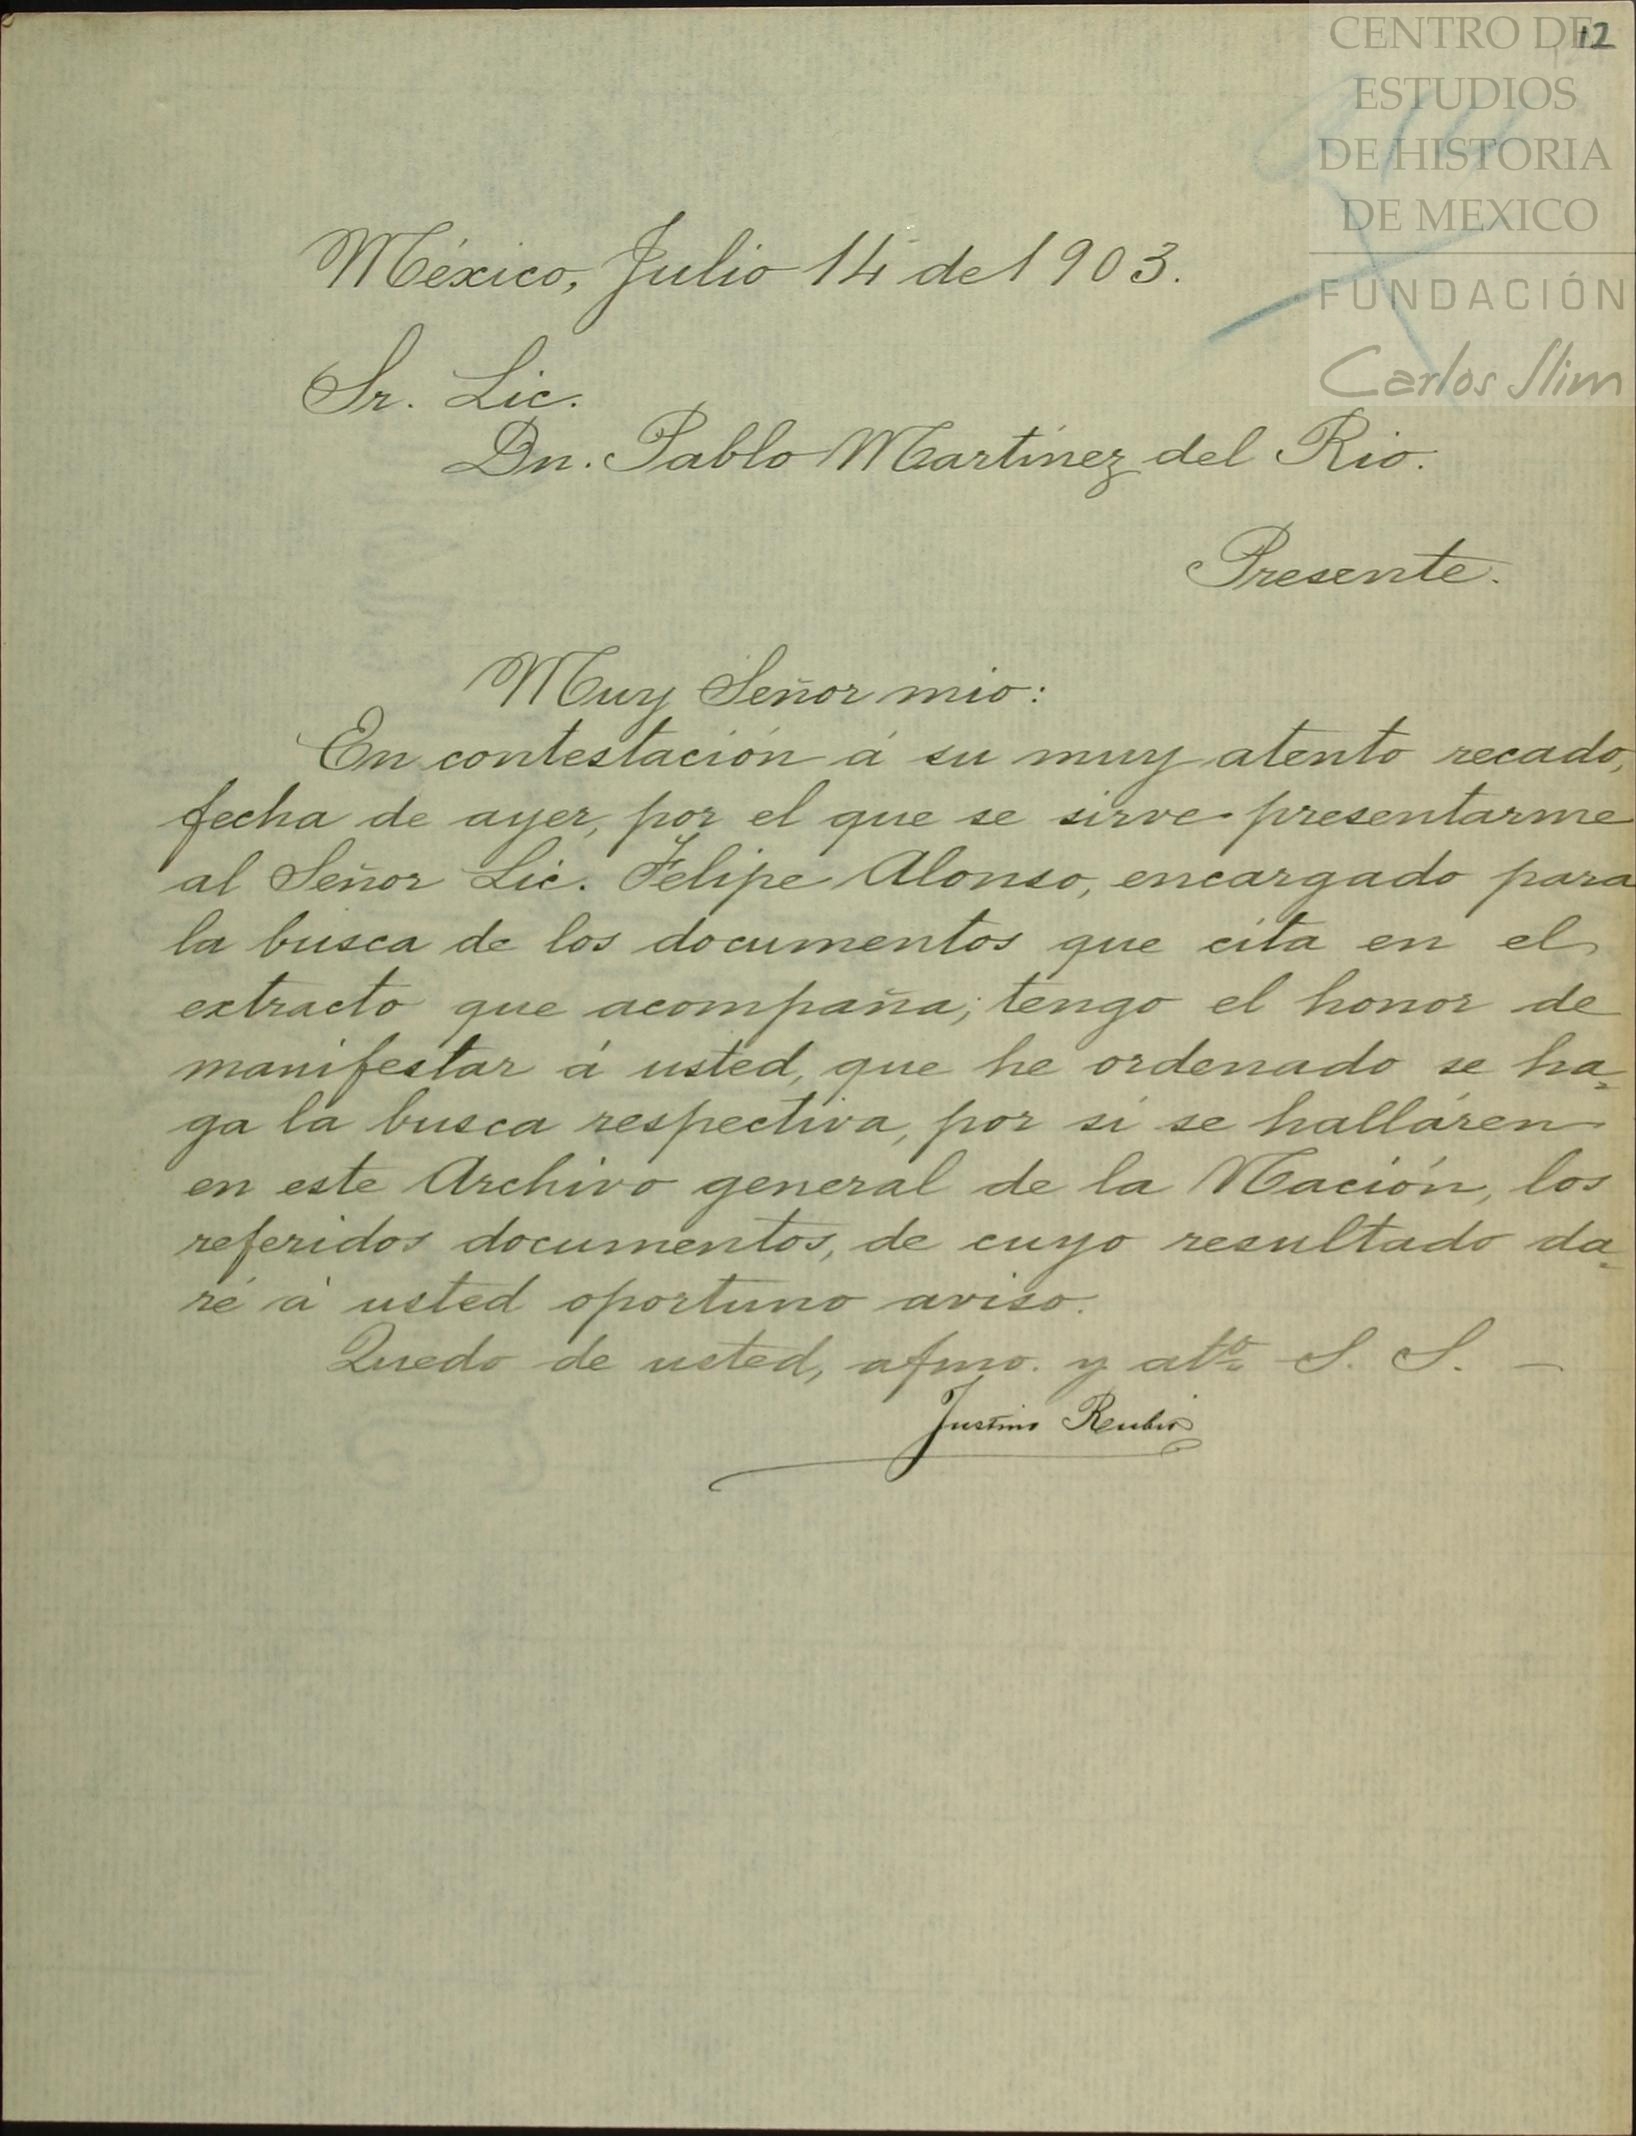 CENTRO DE
ESTUDIOS
DE HISTORIA
DE MEXICO
FUNDACIÓN
Carlos Slim
12
México, Julio 14 de 1903.
Sr. Lic.
Dn. Pablo Martínez del Rio.
Presente.
Muy Señor mio:
En contestación á su muy atento recado,
fecha de ayer, por el que se sirve presentarme
al Señor Lic. Felipe Alonso, encargado para
la busca de los documentos que cita en el
extracto que acompaña; tengo el honor de
manifestar á usted, que he ordenado se ha-
ga la busca respectiva, por si se halláren
en este Archivo general de la Nación, los
referidos documentos, de cuyo resultado da-
ré á usted oportuno aviso.
Quedo de usted, afmo. y atº S. S. —
Justino Rubio